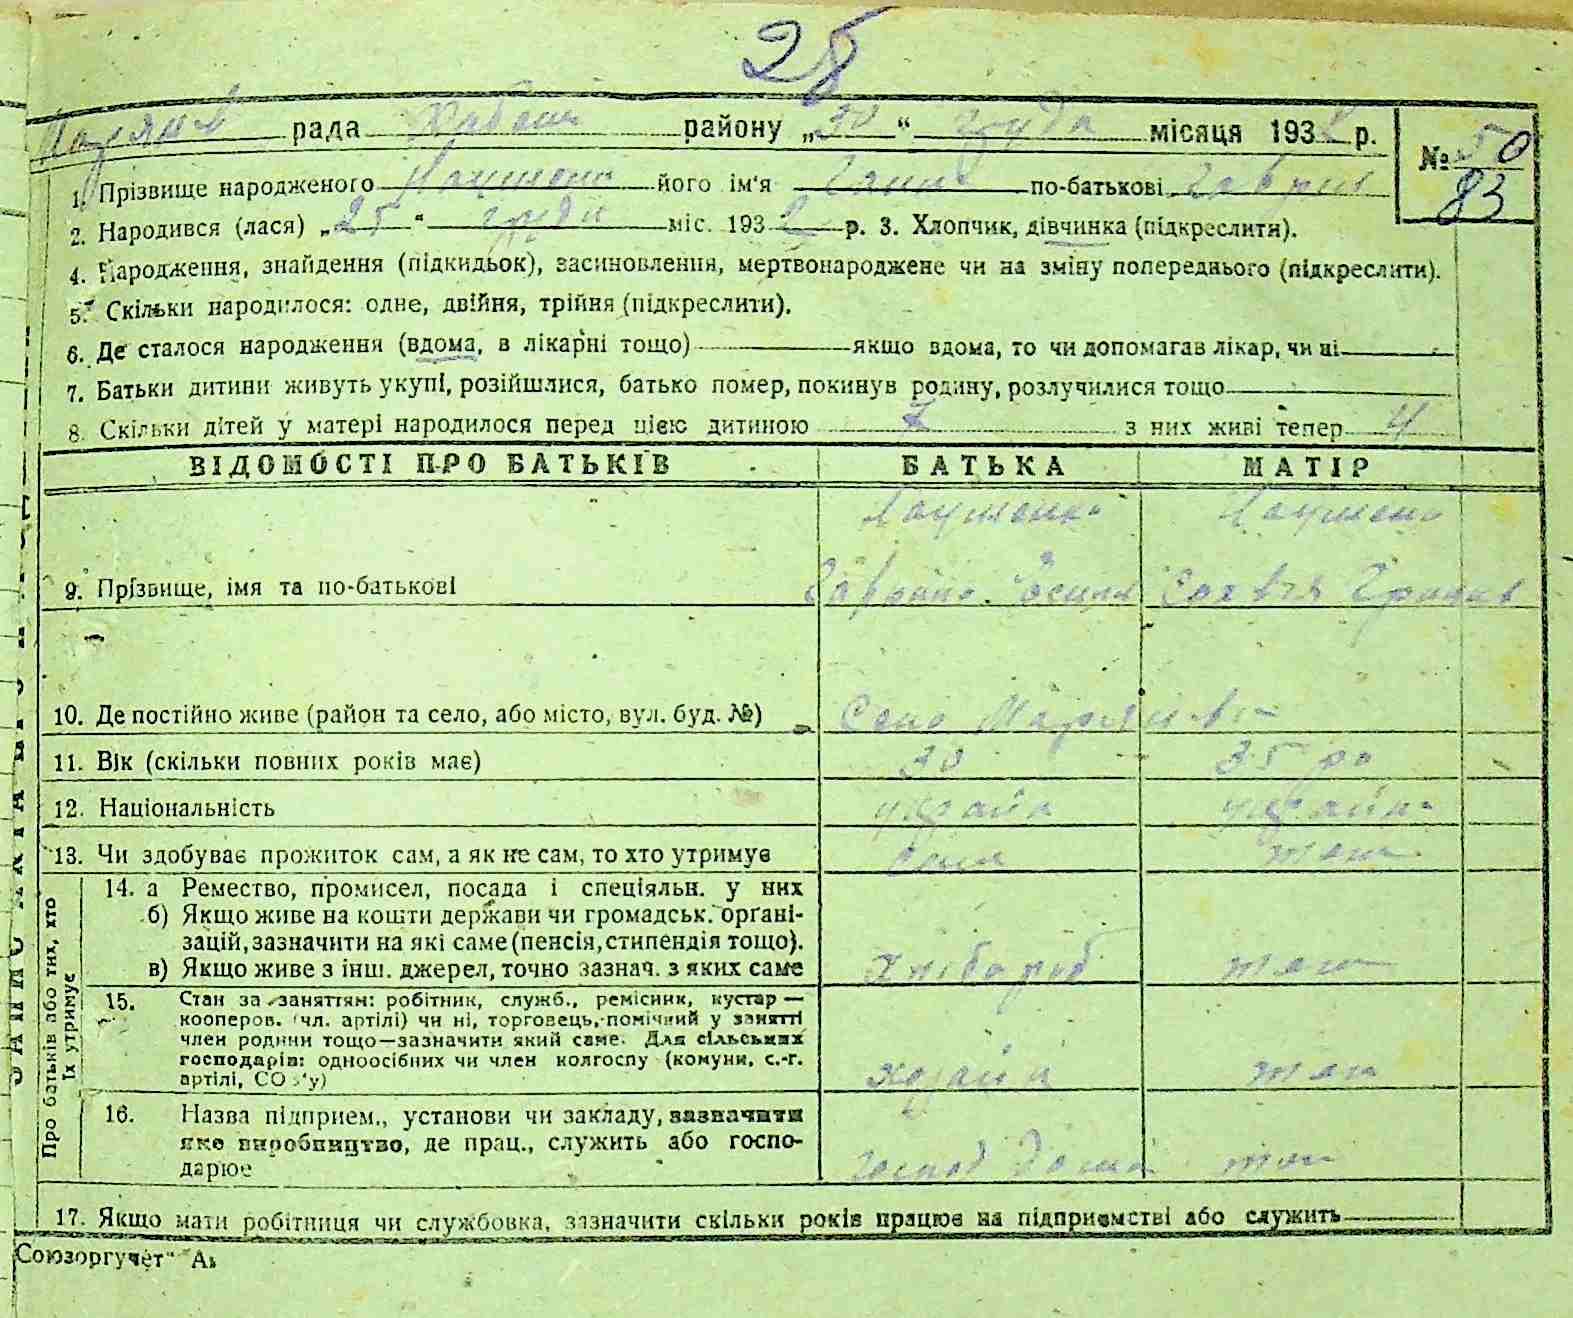 28
Марянів рада Хабен району „30“ грудн місяця 1932 р.
№ 50
83
1. Прізвище народженого його ім'я Ганна по-батькові Гаврил
2. Народився (лася) „25“ грудн міс. 1932 р. 3. Хлопчик, дівчинка (підкреслити).
4. Народження, знайдення (підкидьок), засиновлення, мертвонароджене чи на зміну попереднього (підкреслити).
5. Скільки народилося: одне, двійня, трійня (підкреслити).
6. Де сталося народження (вдома, в лікарні тощо) якщо вдома, то чи допомагав лікар, чи ні
7. Батьки дитини живуть укупі, розійшлися, батько помер, покинув родину, розлучилися тощо
8. Скільки дітей у матері народилося перед цією дитиною 7 з них живі тепер 4
ВІДОМОСТІ ПРО БАТЬКІВ БАТЬКА МАТІР
9. Прізвище, імя та по-батькові
10. Де постійно живе (район та село, або місто, вул. буд. №) Село Марянівка
11. Вік (скільки повних років має) 30 35 ро
12. Національність україн україн
13. Чи здобуває прожиток сам, а як не сам, то хто утримує сам теж
Про батьків або тих, хто їх утримує
14. а Ремество, промисел, посада і спеціяльн. у них
б) Якщо живе на кошти держави чи громадськ. органі-
зацій, зазначити на які саме (пенсія, стипендія тощо).
в) Якщо живе з інш. джерел, точно зазнач. з яких саме хлібороб теж
15. Стан за заняттям: робітник, служб., ремісник, кустар —
кооперов. (чл. артілі) чи ні, торговець, помічний у занятті
член родини тощо—зазначити який саме. Для сільських
господарів: одноосібних чи член колгоспу (комуни, с.-г.
артілі, СО у) хозяїн теж
16. Назва підприєм., установи чи закладу, зазначити
яке виробництво, де прац., служить або госпо-
дарює господ дома теж
17. Якщо мати робітниця чи службовка, зазначити скільки років працює на підприємстві або служить
Союзоргучет"